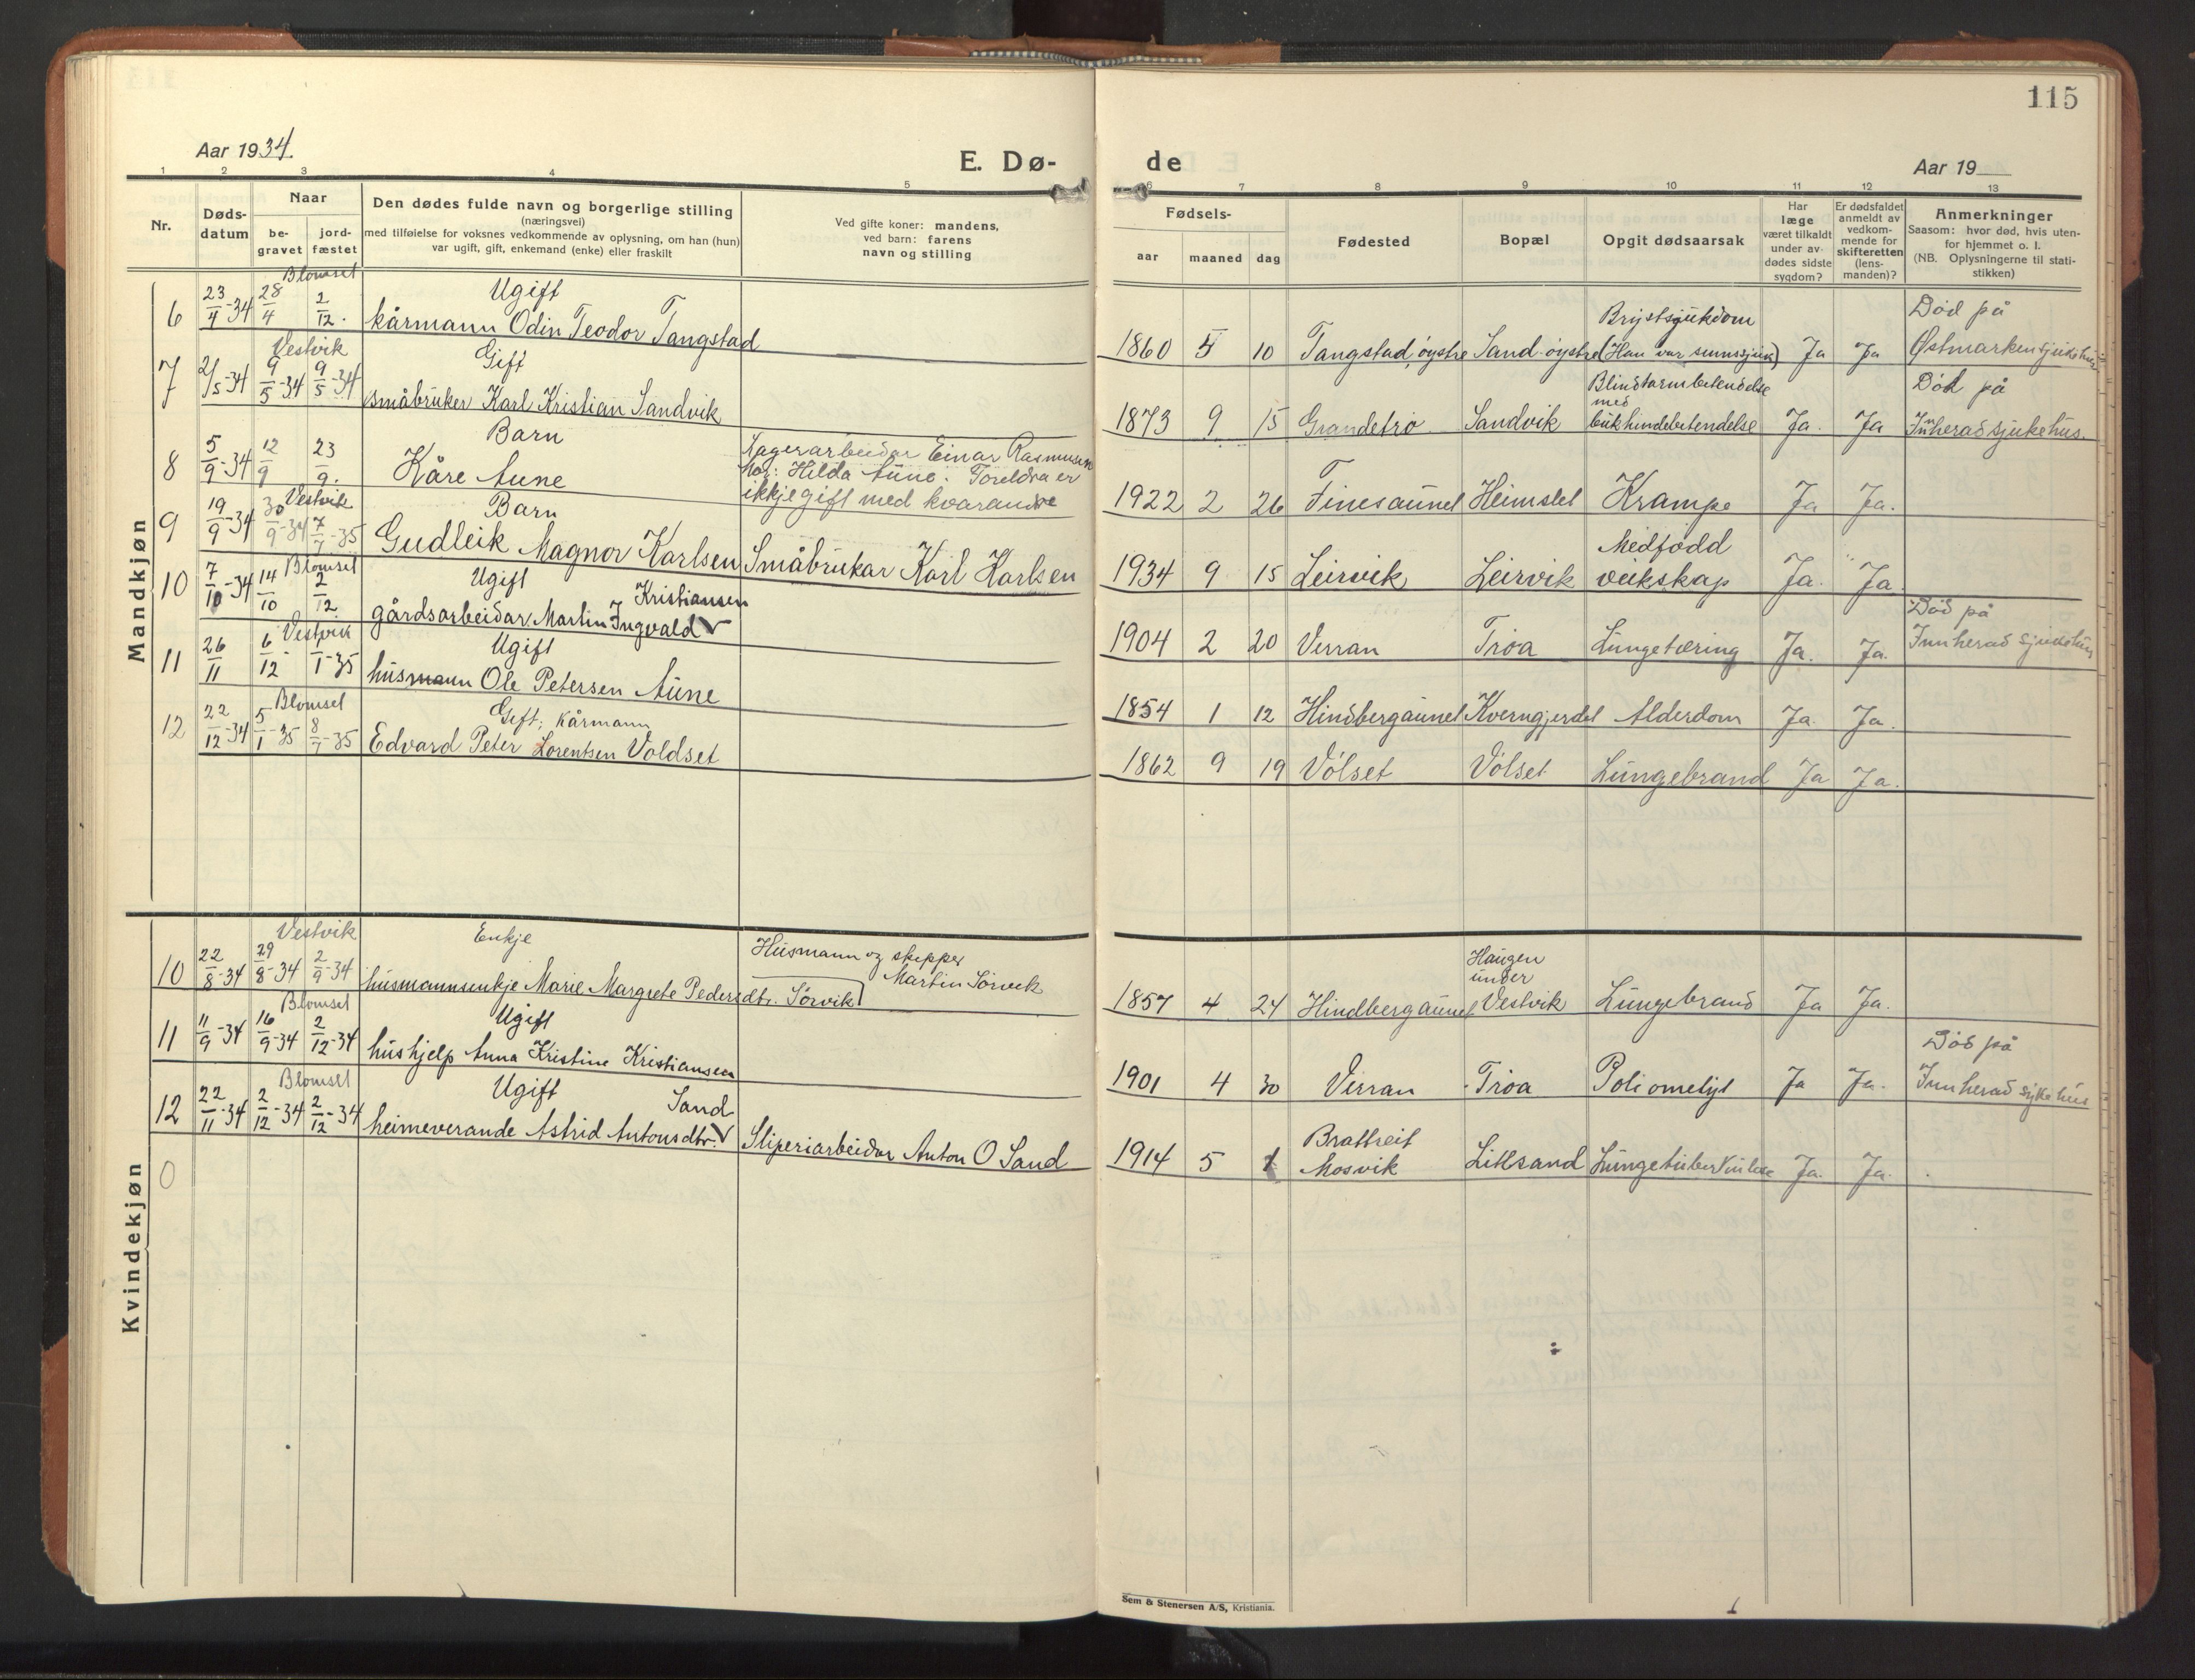 115
Aar 1934.
E. Dø-
de
Aar 19
1 2 3 4 5 6 7 8 9 10 11 12 13
Nr.
Døds-
datum
Naar
be-
gravet
jord-
fæstet
Den dødes fulde navn og borgerlige stilling
(næringsvei)
med tilføielse for voksnes vedkommende av oplysning, om han (hun)
var ugift, gift, enkemand (enke) eller fraskilt
Ved gifte koner: mandens,
ved barn: farens
navn og stilling
Fødsels-
aar maaned dag
Fødested
Bopæl
Opgit dødsaarsak
Har
læge
været tilkaldt
under av-
dødes sidste
sygdom?
Er dødsfaldet
anmeldt av
vedkom-
mende for
skifteretten
(lens-
manden)?
Anmerkninger
Saasom: hvor død, hvis uten-
for hjemmet o. l.
(NB. Oplysningerne til stati-
stikken)
Mandkjøn
Blomset
6 23/4-34 28/4 2/12. Ugift
kårmann Odin Teodor Tangstad
1860 5 10 Tangstad, øystre Sand-øystre Brystsjukdom
(Han var sinnssjuk) Ja Ja Død på
Østmarken sjukehus
Vestvik
7 2/5-34 9/5-34 9/5-34 Gift
småbruker Karl Kristian Sandvik
1873 9 15 Grandetrø Sandvik Blindtarmbetendelse
med
bukhindebetendelse Ja. Ja Død på
Innherad sjukehus.
8 5/9-34 12/9 23/9. Barn
Kåre Aune
Lagerarbeidar Einar Rasmusen
Mor: Hilda Aune. Foreldra er
ikkje gift med kvarandre
1922 2 26 Finesaunet Heimslet Krampe Ja Ja.
Vestvik
9 19/9-34 30/9-34 7/7-35 Barn
Gudleik Magnor Karlsen Småbrukar Karl Karlsen
1934 9 15 Leirvik Leirvik Medfødd
veikskap Ja. Ja.
Blomset
10 7/10-34 14/10 2/12 Ugift
Kristiansen
gårdsarbeidar Martin Ingvald V
1904 2 20 Verran Trøa Lungetæring Ja. Ja. Død på
Innherad sjukehus
Vestvik
11 26/11 6/12- 1/1-35 Ugift
husmann Ole Petersen Aune
1854 1 12 Hindbergaunet Kverngjerdet Alderdom Ja. Ja.
Blomset
12 22/12-34 5/1-35 8/7-35 Gift; kårmann
Edvard Peter Lorentsen Voldset
1862 9 19 Volset Volset Lungebrand Ja Ja.
Kvindekjøn
Vestvik
10 22/8-34 29/8-34 2/9-34 Enkje
husmannsenkje Marie Margrete Pedersdtr. Sørvik
Husmann og skipper
Martin Sørvik
1857 4 24 Hindbergaunet Haugen
under
Vestvik Lungebrand Ja Ja.
Blomset
11 11/9-34 16/9-34 2/12-34 Ugift
hushjelp Anna Kristine Kristiansen
1901 4 30 Verran Trøa Poliomelyt Ja Ja. Død på
Innherad sykehus
Blomset
12 22/11-34 2/12-34 2/12-34 Ugift
Sand
heimeverande Astrid Antonsdtr. V Sliperiarbeidar Anton O Sand
1914 5 1 Brattreit
Mosvik Litlsand Lungetuberkulose Ja. Ja.
0
Sem & Stenersen A/S, Kristiania.